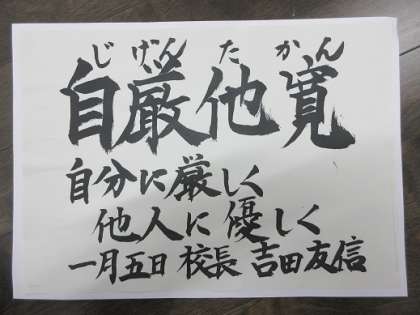 じげんたかん
自厳他寛
自分に厳しく
他人に優しく
一月五日 校長 吉田友信